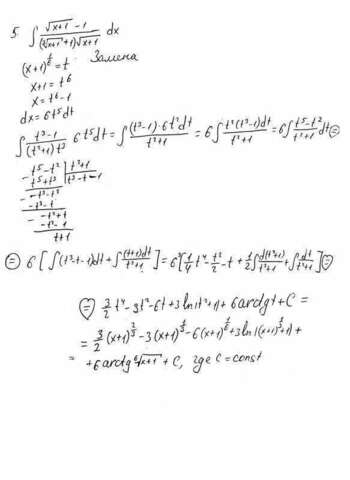 5. ∫ (√(x+1) - 1) / ((∛(x+1) + 1)√(x+1)) dx
(x+1)^(1/6) = t Замена
x+1 = t^6
x = t^6 - 1
dx = 6t^5 dt
∫ (t^3-1)/((t^2+1)t^3) 6t^5 dt = ∫ ((t^3-1)·6t^2 dt)/(t^2+1) = 6∫ (t^2(t^3-1)dt)/(t^2+1) = 6∫ (t^5-t^2)/(t^2+1) dt =
- t^5-t^2 | t^2+1
t^5+t^3 | t^3-t-1
- -t^3-t^2
-t^3-t
- -t^2+t
-t^2-1
t+1
= 6[∫(t^3-t-1)dt + ∫ ((t+1)dt)/(t^2+1)] = 6[1/4 t^4 - t^2/2 - t + 1/2 ∫ d(t^2+1)/(t^2+1) + ∫ dt/(t^2+1)] =
= 3/2 t^4 - 3t^2 - 6t + 3ln|t^2+1| + 6arctgt + C =
= 3/2 (x+1)^(2/3) - 3(x+1)^(1/3) - 6(x+1)^(1/6) + 3ln|(x+1)^(1/3)+1| +
+ 6arctg ⁶√(x+1) + C, где C = const